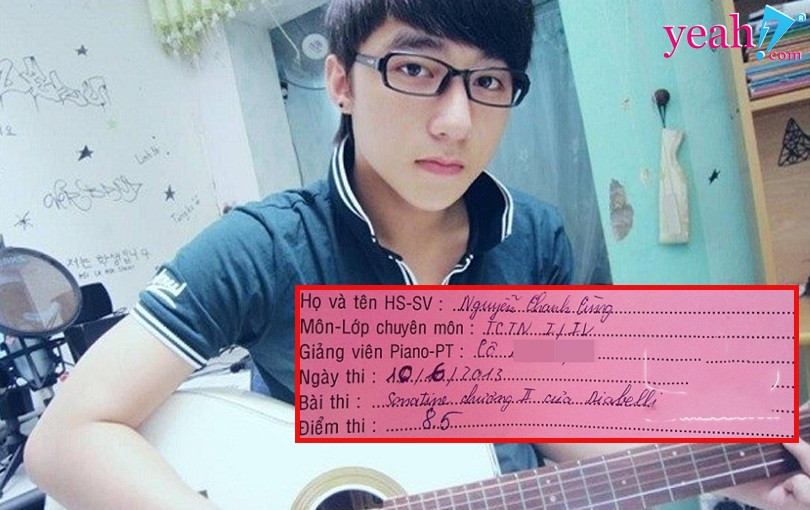 yeah1
.com
Linh is
Tung is
저는 학생입니다
Họ và tên HS-SV : Nguyễn Thanh Tùng
Môn-Lớp chuyên môn : T.C.T.N I / I.V
Giảng viên Piano-PT : Cô
Ngày thi : 10/6/2013
Bài thi : Sonatine chương II của Diabelli
Điểm thi : 8.5